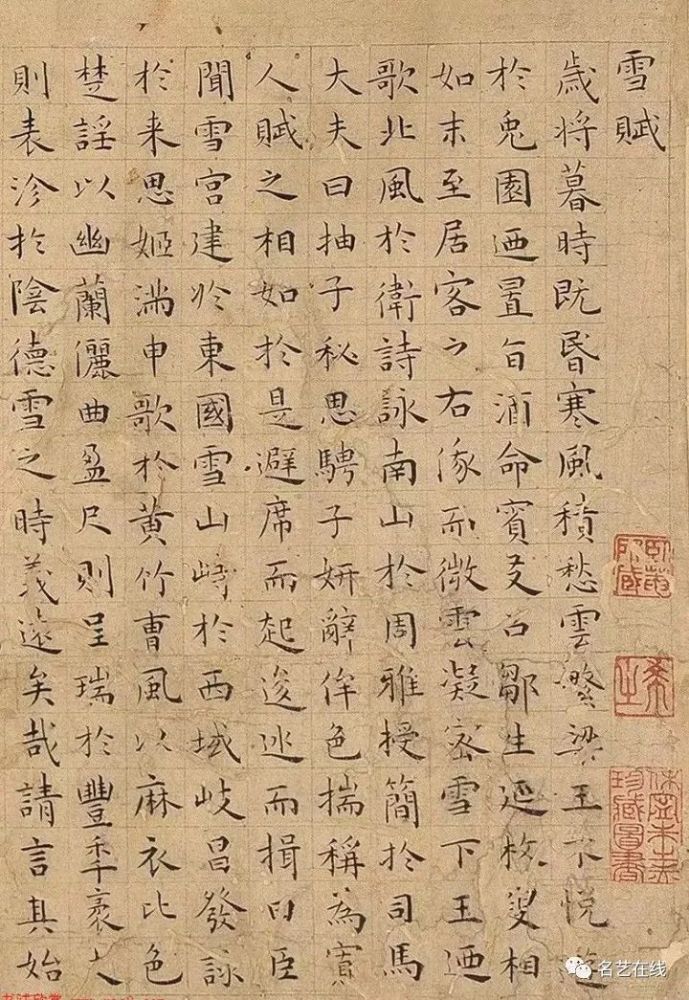 雪賦
歳將暮時既昬寒風積愁雲繁梁王不悅遊
於兔園迺置旨酒命賓友召鄒生延枚叟相
如末至居客之右俄而微雲凝密雪下王迺
歌北風於衛詩詠南山於周雅授簡於司馬
大夫曰抽子秘思騁子妍辭侔色揣稱為寡
人賦之相如於是避席而起逡巡而揖曰臣
聞雪宮建於東國雪山峙於西域岐昌發詠
於来思姬滿申歌於黄竹曹風以麻衣比色
楚謡以幽蘭儷曲盈尺則呈瑞於豐年袤丈
則表沴於陰德雪之時義遠矣哉請言其始
珍藏圖書
名艺在线